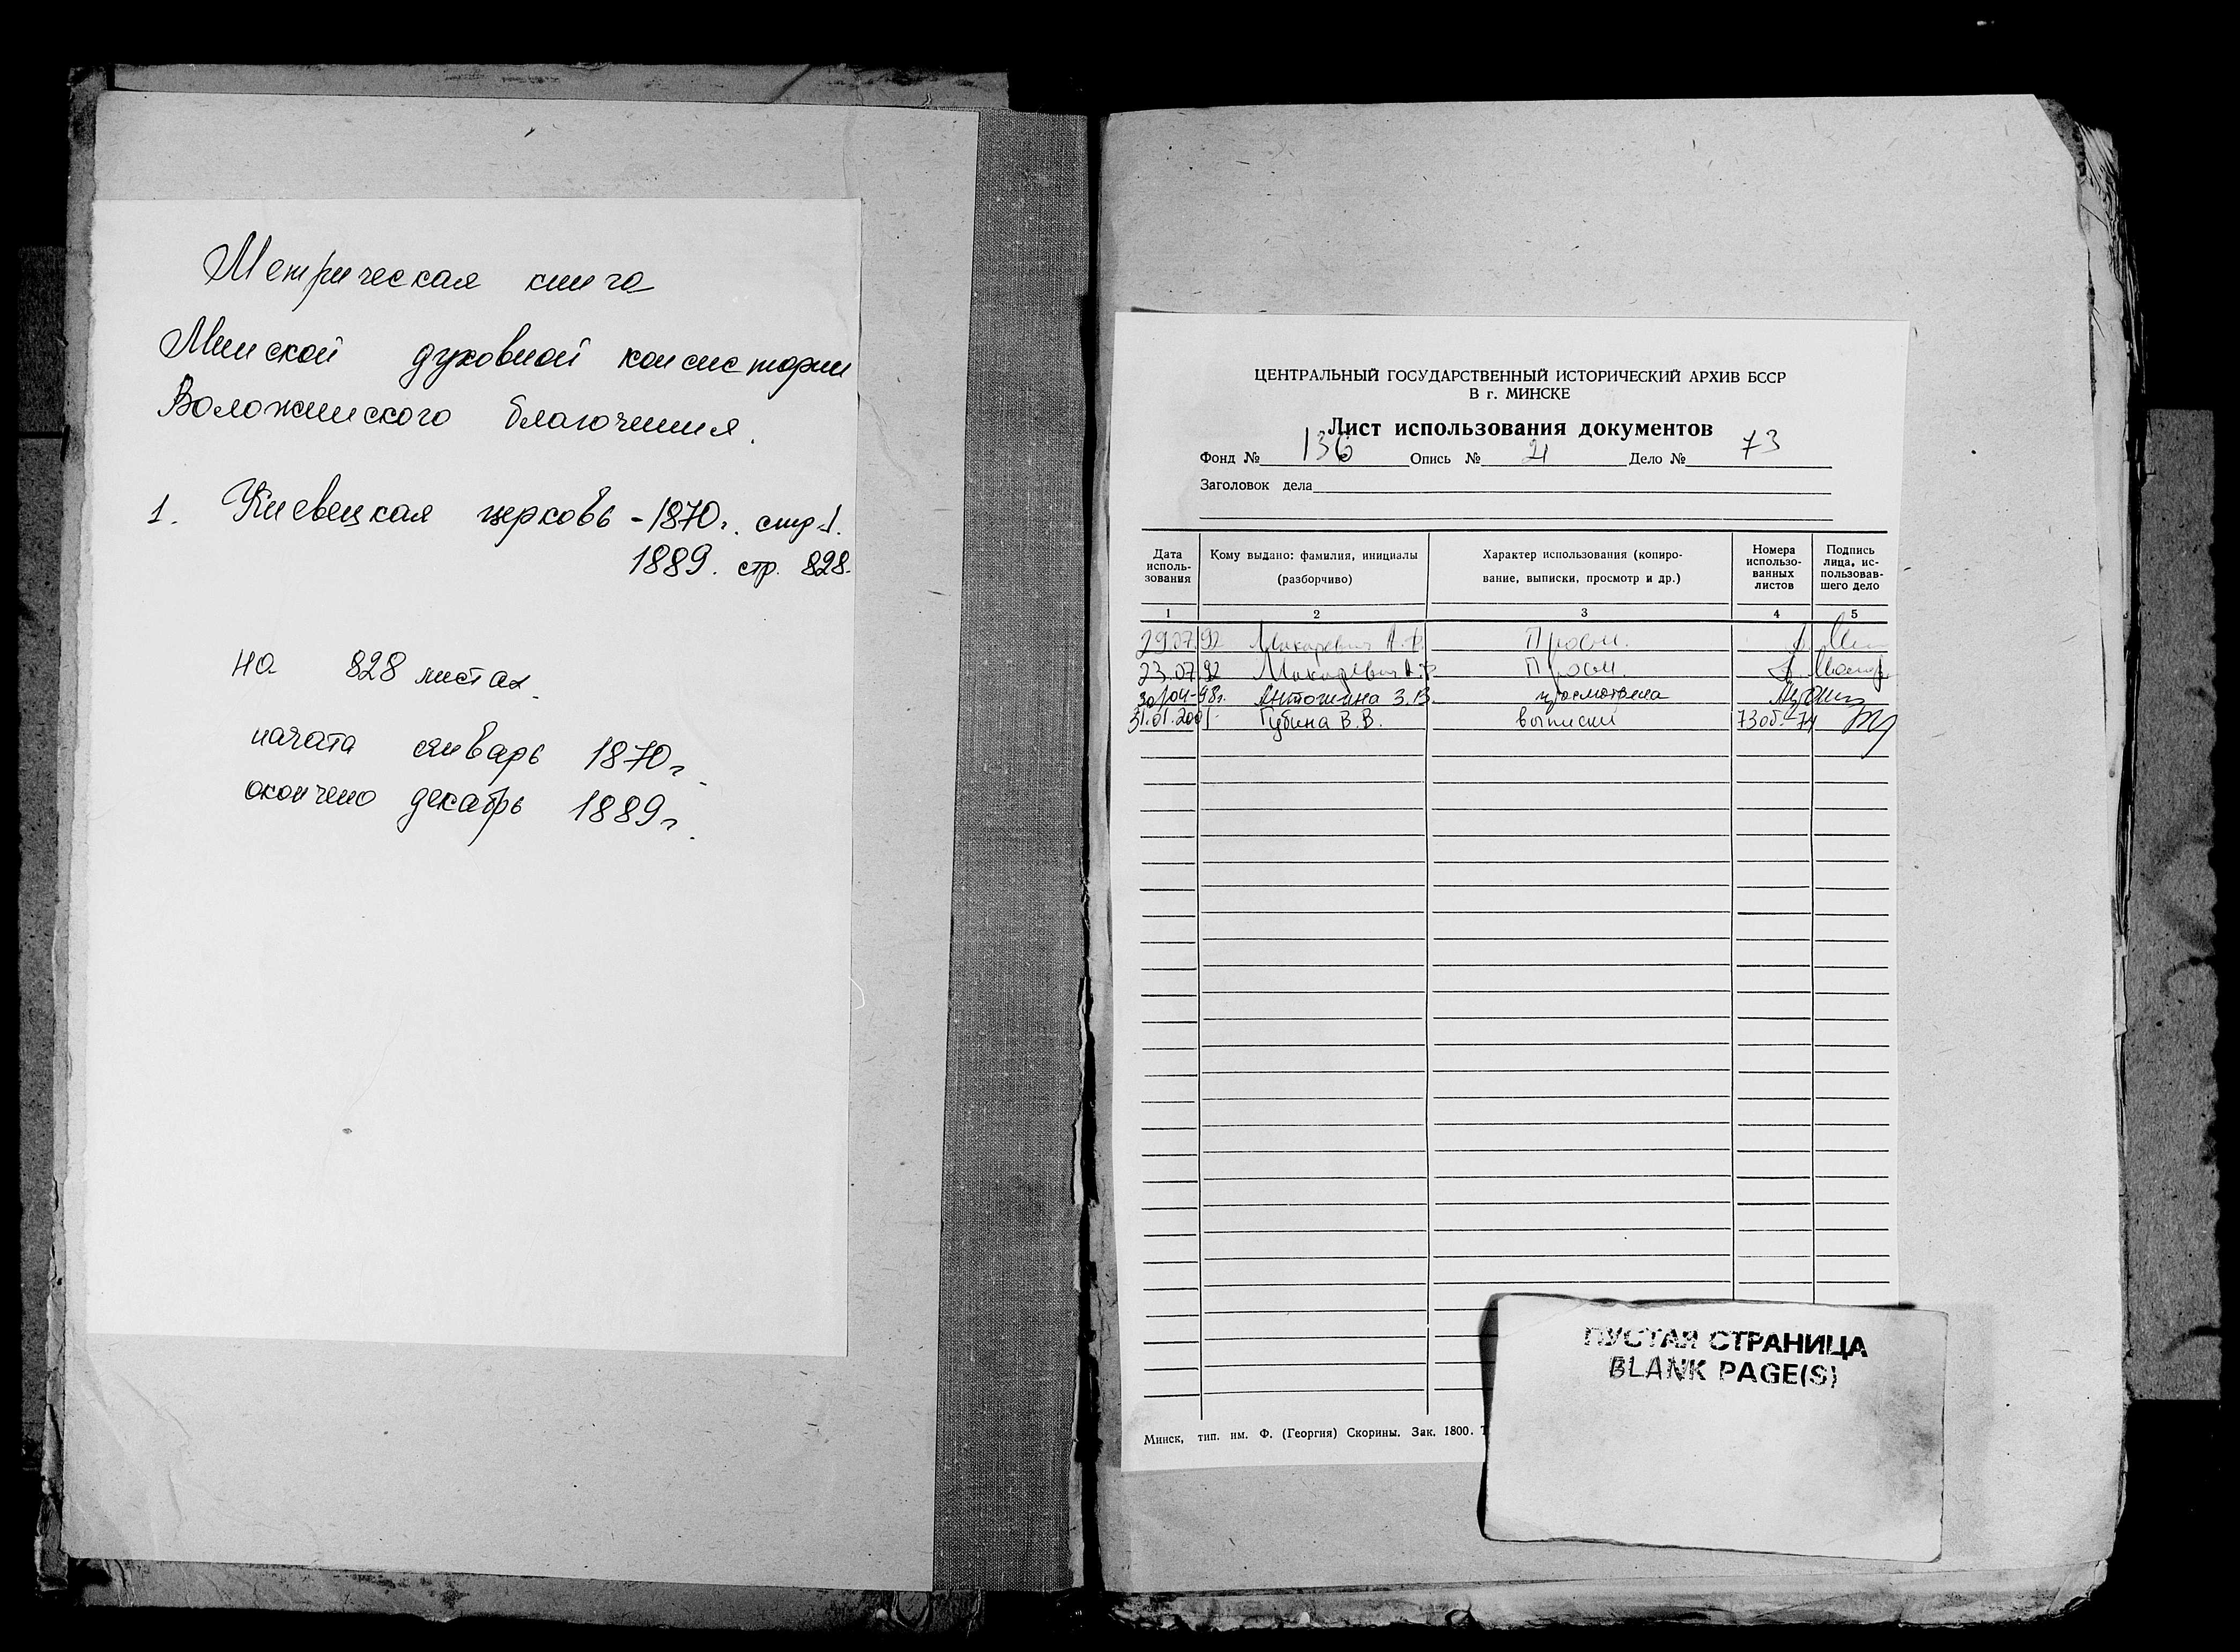 Метрическая книга
Минской духовной консистории
Воложинского благочиния.
1. Киевецкая церковь - 1870г. стр. 1.
1889. стр. 828.
на 828 листах.
начата январь 1870г.
окончено декабрь 1889г.
ЦЕНТРАЛЬНЫЙ ГОСУДАРСТВЕННЫЙ ИСТОРИЧЕСКИЙ АРХИВ БССР
В г. МИНСКЕ
Лист использования документов
Фонд № 136 Опись № 21 Дело № 73
Заголовок дела
Дата использования
Кому выдано: фамилия, инициалы
(разборчиво)
Характер использования (копиро-
вание, выписки, просмотр и др.)
Номера
использо-
ванных
листов
Подпись
лица, ис-
пользовав-
шего дело
1 2 3 4 5
07.92 Макаревич А.Ф. Просм.
23.07.92 Макаревич А.Ф. Просм.
30/04-98г. Антошина З.В. просмотрела
31.01.2001 Губина В.В. выписки 73об.-74
Минск, тип. им. Ф. (Георгия) Скорины. Зак. 1800.
ПУСТАЯ СТРАНИЦА
BLANK PAGE(S)